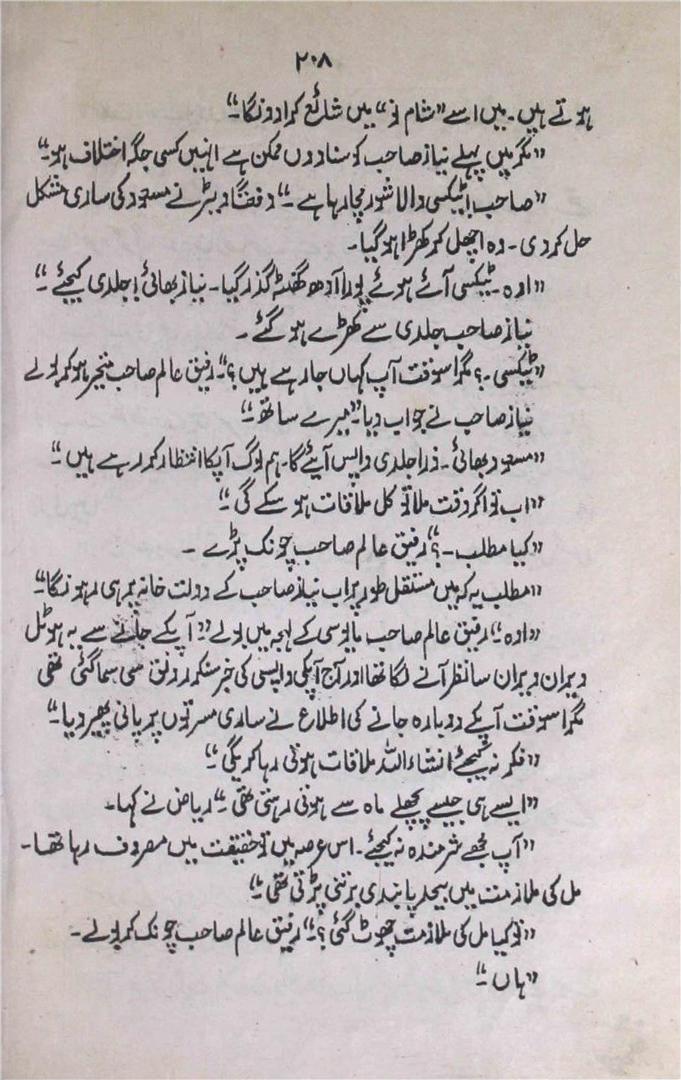 ۲۰۸
ہوتے ہیں۔ میں اسے "شام نو" میں شائع کرادونگا۔"
"مگر میں پہلے نیاز صاحب کو سنادوں ممکن ہے انہیں کسی جگہ اختلاف ہو۔"
"صاحب! ٹیکسی والا شور مچا رہا ہے۔" دفعتًا ویٹر نے مسعود کی ساری مشکل
حل کردی۔ وہ اچھل کر کھڑا ہو گیا۔
"اوہ۔ ٹیکسی آئے ہوئے پورا آدھ گھنٹہ گذر گیا۔ نیاز بھائی! جلدی کیجئے۔"
نیاز صاحب جلدی سے کھڑے ہو گئے۔
"ٹیکسی۔؟ مگر اسوقت آپ کہاں جارہے ہیں؟" رفیق عالم صاحب متحیر ہو کر بولے
نیاز صاحب نے جواب دیا۔ "میرے ساتھ۔"
"مسعود بھائی۔ ذرا جلدی واپس آیئے گا۔ ہم لوگ آپکا انتظار کررہے ہیں۔"
"اب تو اگر وقت ملا تو کل ملاقات ہو سکے گی۔"
"کیا مطلب۔؟" رفیق عالم صاحب چونک پڑے۔
"مطلب یہ کہ میں مستقل طور پر اب نیاز صاحب کے دولت خانہ پر ہی رہونگا۔"
"اوہ۔" رفیق عالم صاحب مایوسی کے لہجہ میں بولے "آپکے جانے سے یہ ہوٹل
ویران ویران سا نظر آنے لگا تھا اور آج آپکی واپسی کی خبر سنکر رونق سی سماگئی تھی
مگر اسوقت آپکے دوبارہ جانے کی اطلاع نے ساری مسرتوں پر پانی پھیر دیا۔"
"فکر نہ کیجئے انشاءاللہ ملاقات ہوتی رہا کریگی۔"
"ایسے ہی جیسے پچھلے ماہ سے ہوتی رہتی تھی۔" ریاض نے کہا۔
"آپ مجھے شرمندہ نہ کیجئے۔ اس عرصہ میں تو حقیقت میں مصروف رہا تھا۔
مل کی ملازمت میں بیحد پابندی برتنی پڑتی تھی۔"
"تو کیا مل کی ملازمت چھوٹ گئی؟۔" رفیق عالم صاحب چونک کر بولے۔
"ہاں۔"